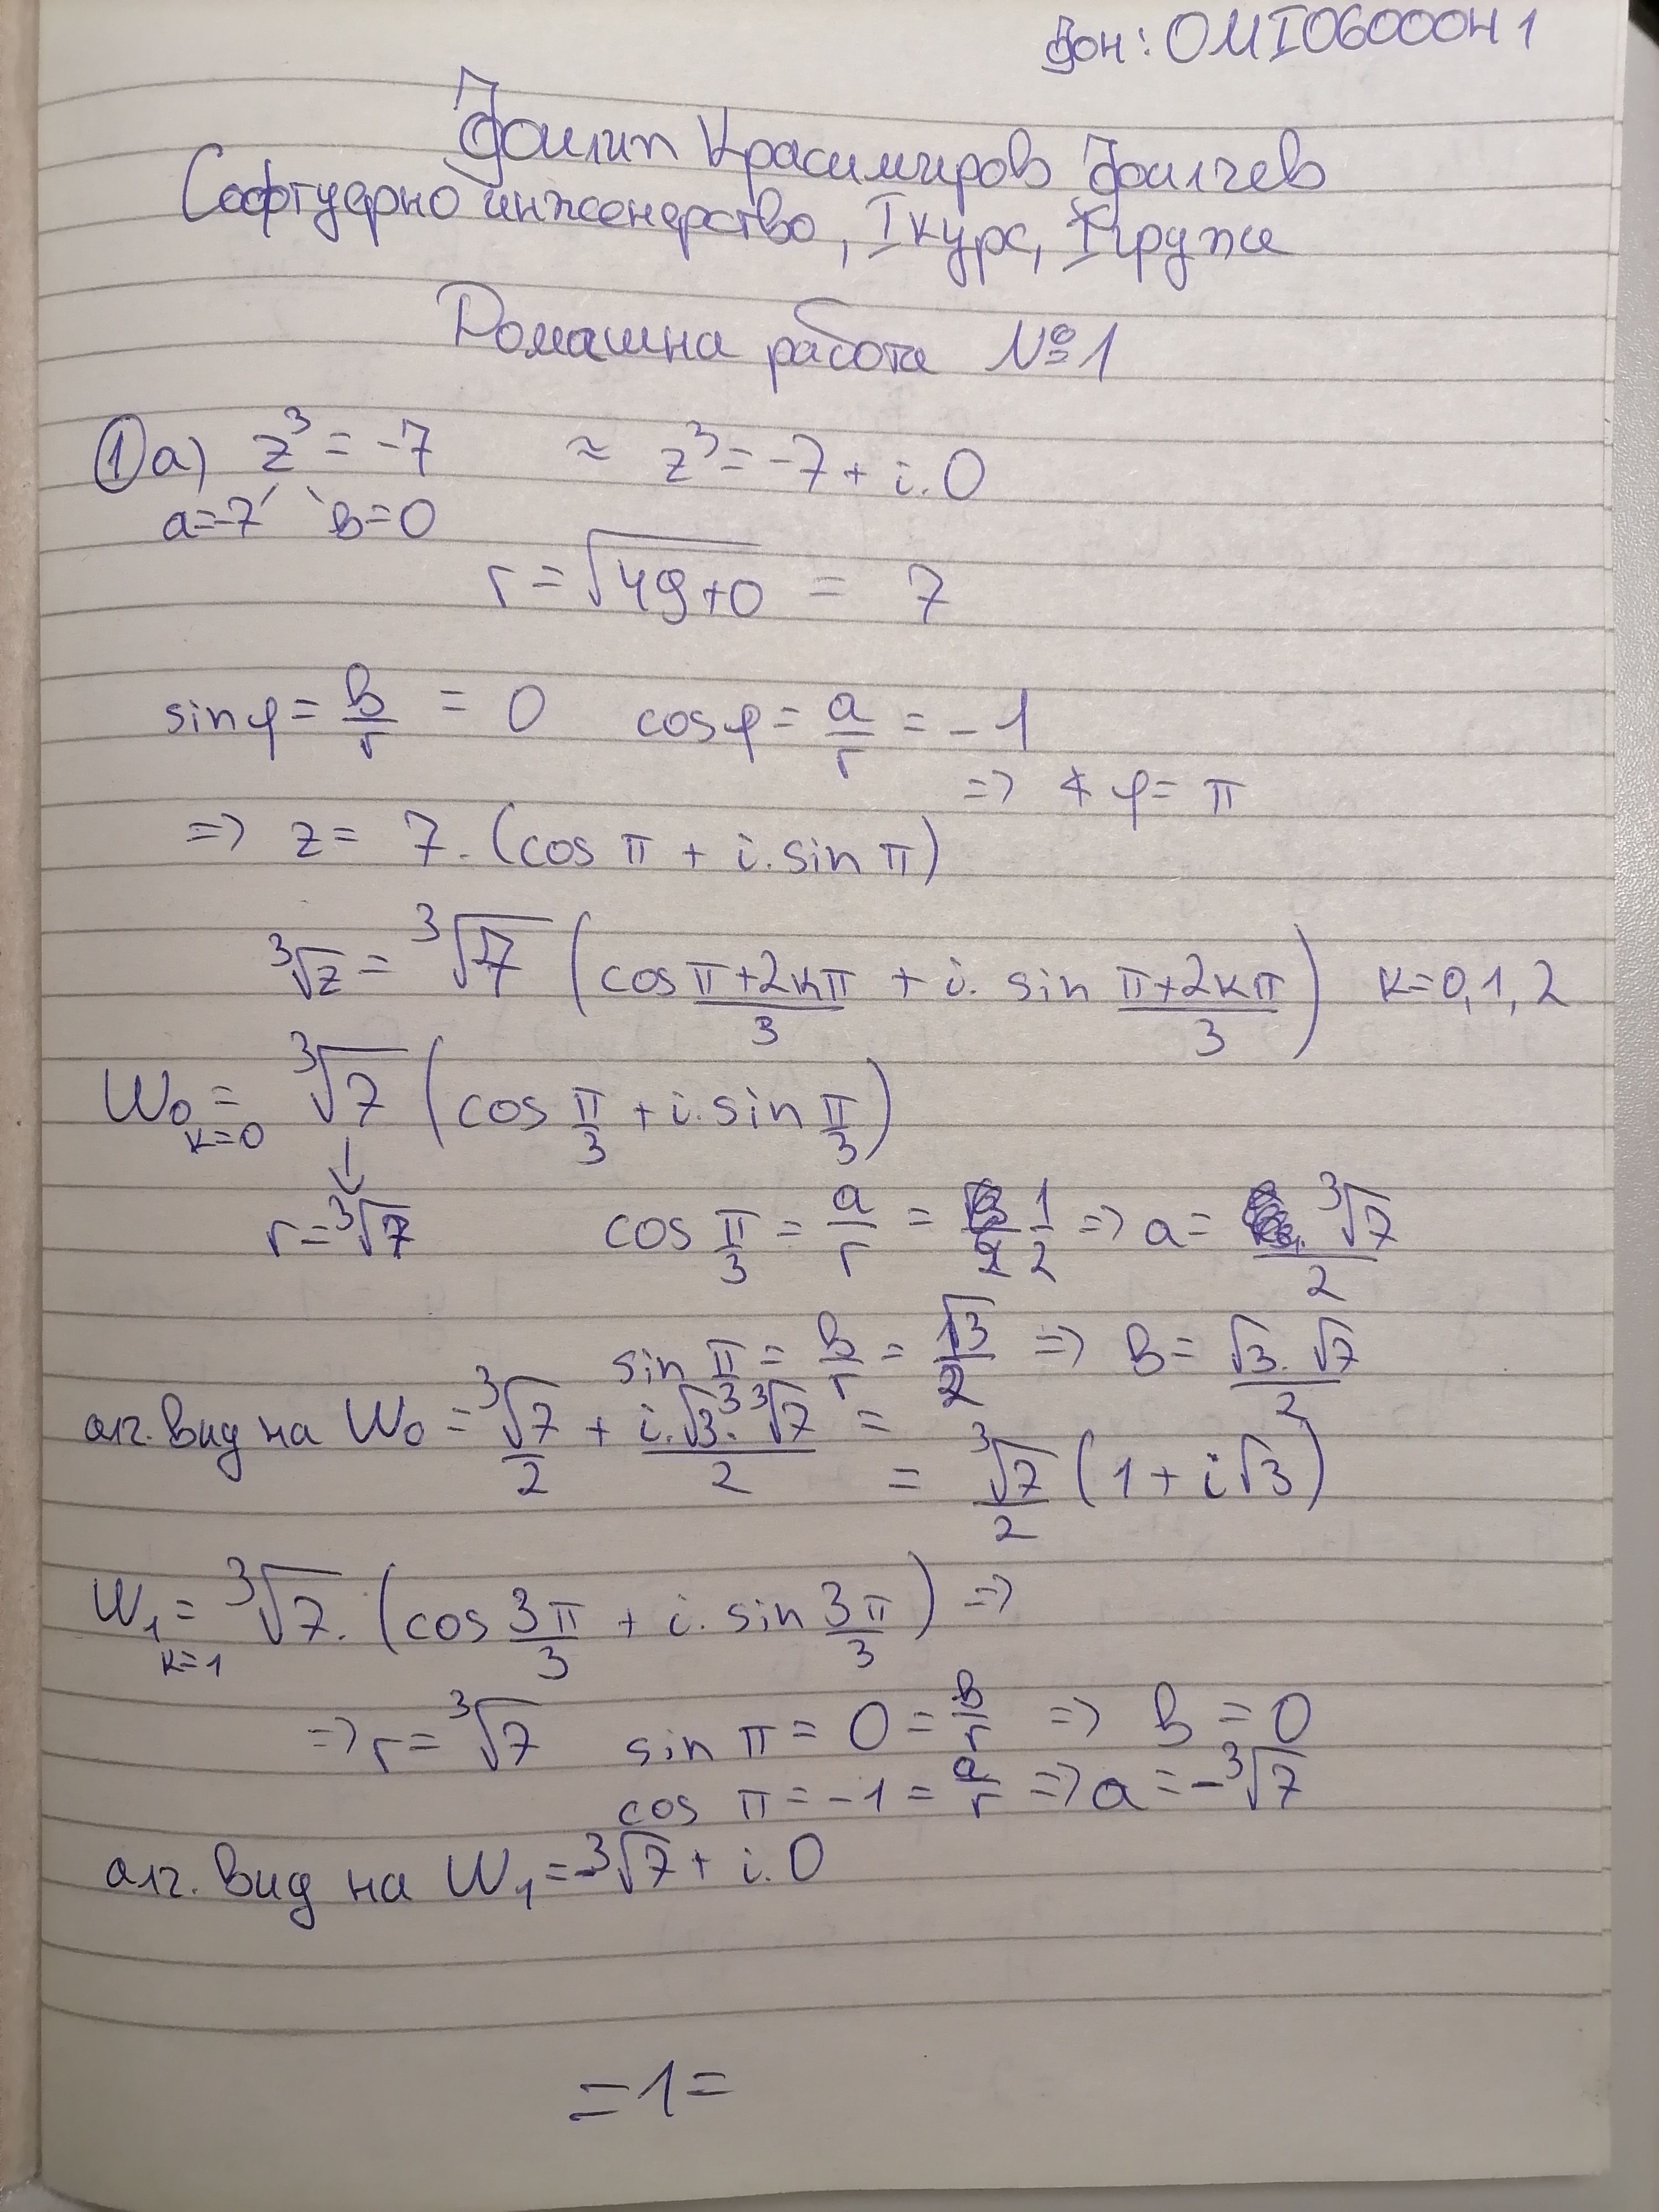 фон: 0MI06000H1
Филип Красимиров Филчев
Софтуерно инженерство, I курс, I група
Домашна работа №1
① а) z³ = -7 ≈ z³ = -7 + i.0
a=-7 b=0
r = √(49+0) = 7
sin φ = b/r = 0 cos φ = a/r = -1
=> ∢ φ = π
=> z = 7.(cos π + i.sin π)
∛z = ∛7 (cos (π+2kπ)/3 + i. sin (π+2kπ)/3) k=0,1,2
W₀ = ∛7 (cos π/3 + i.sin π/3)
k=0 ↓
r = ∛7 cos π/3 = a/r = 1/2 => a = ∛7/2
sin π/3 = b/r = √3/2 => b = √3.√7/2
алг. вид на W₀ = ∛7/2 + i.√3.∛7/2 =
= ∛7/2 (1 + i√3)
W₁ = ∛7. (cos 3π/3 + i. sin 3π/3) =>
k=1
=> r = ∛7 sin π = 0 = b/r => b = 0
cos π = -1 = a/r => a = -∛7
алг. вид на W₁ = -∛7 + i.0
=1=